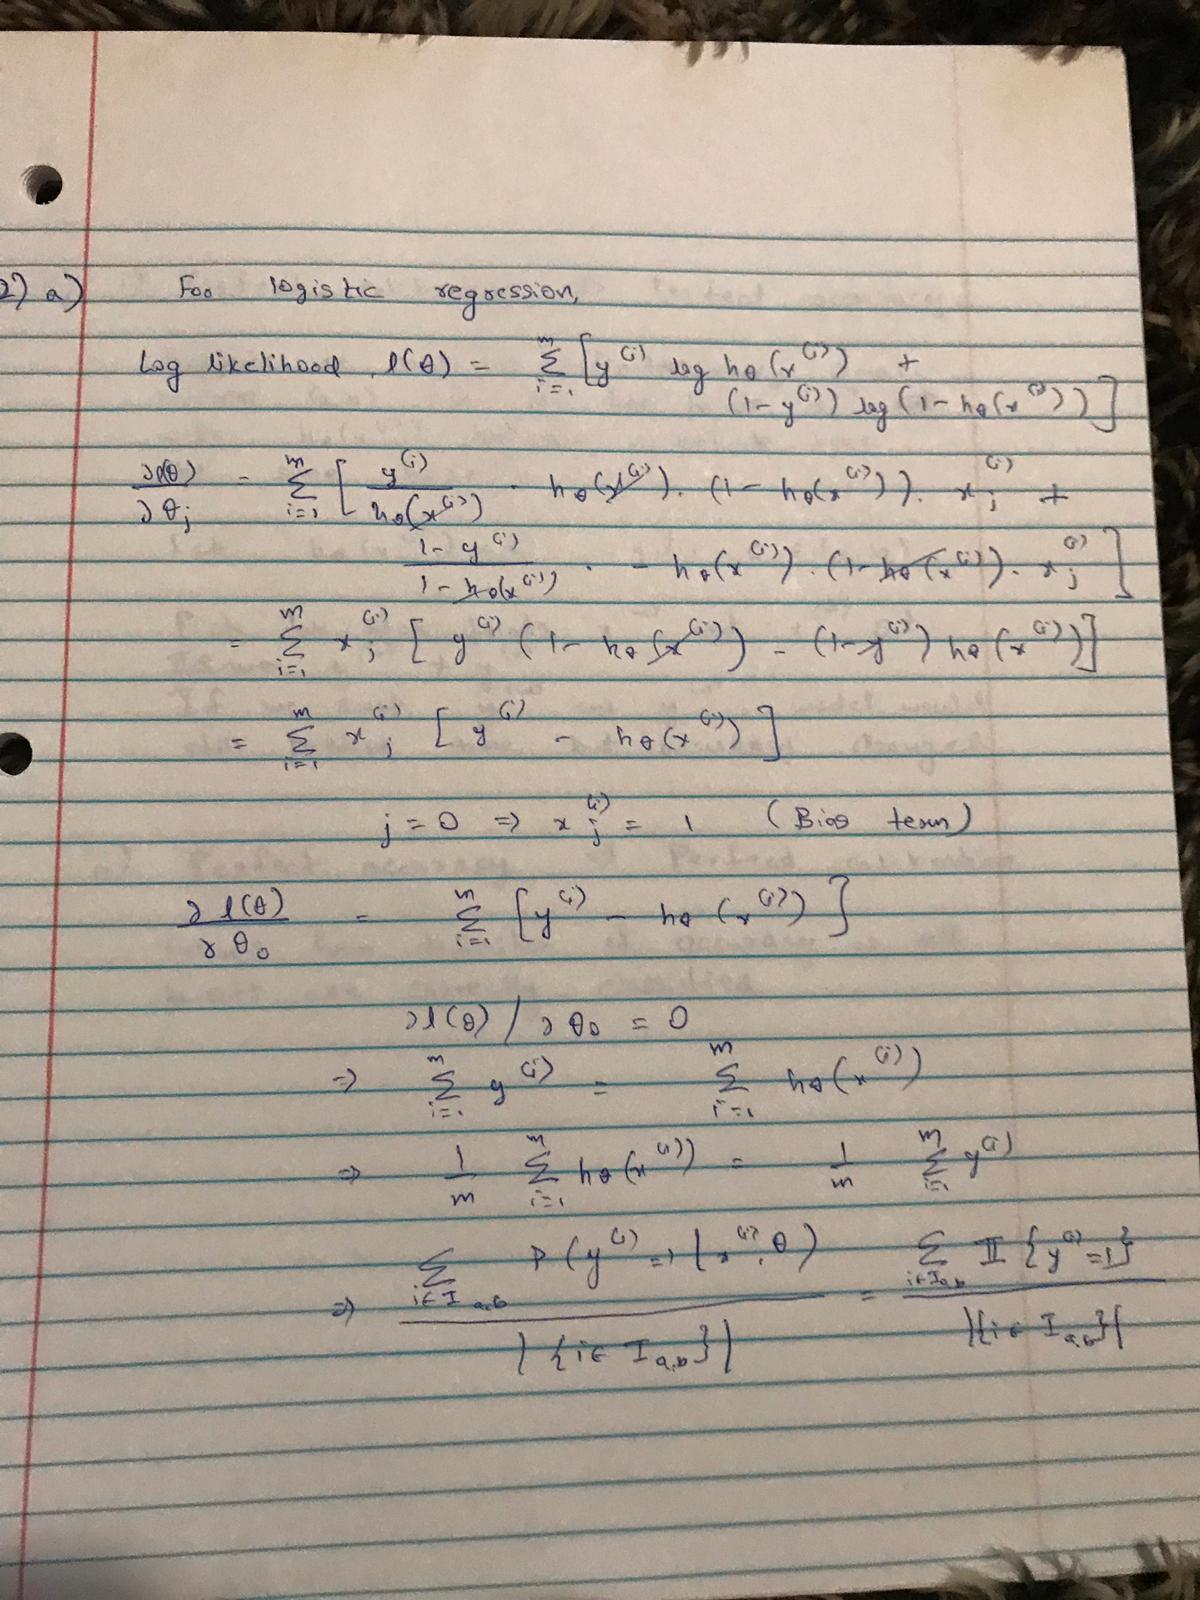 2) a) For logistic regression,
Log likelihood, l(θ) = Σ_{i=1}^{m} [ y^{(i)} log h_θ(x^{(i)}) +
(1 - y^{(i)}) log (1 - h_θ(x^{(i)})) ]
∂l(θ)/∂θ_j = Σ_{i=1}^{m} [ y^{(i)} / h_θ(x^{(i)}) · h_θ(x^{(i)}) · (1 - h_θ(x^{(i)})) · x_j^{(i)} +
(1 - y^{(i)}) / (1 - h_θ(x^{(i)})) · - h_θ(x^{(i)}) · (1 - h_θ(x^{(i)})) · x_j^{(i)} ]
= Σ_{i=1}^{m} x_j^{(i)} [ y^{(i)} (1 - h_θ(x^{(i)})) - (1 - y^{(i)}) h_θ(x^{(i)}) ]
= Σ_{i=1}^{m} x_j^{(i)} [ y^{(i)} - h_θ(x^{(i)}) ]
j = 0 ⇒ x_j^{(i)} = 1 (Bias term)
∂l(θ)/∂θ_0 = Σ_{i=1}^{m} [ y^{(i)} - h_θ(x^{(i)}) ]
∂l(θ) / ∂θ_0 = 0
⇒ Σ_{i=1}^{m} y^{(i)} = Σ_{i=1}^{m} h_θ(x^{(i)})
⇒ 1/m Σ_{i=1}^{m} h_θ(x^{(i)}) = 1/m Σ_{i=1}^{m} y^{(i)}
⇒ Σ_{i∈I_{a,b}} P(y^{(i)} = 1 | x^{(i)}; θ) / |{i ∈ I_{a,b}}| = Σ_{i∈I_{a,b}} 𝕀{y^{(i)} = 1} / |{i ∈ I_{a,b}}|